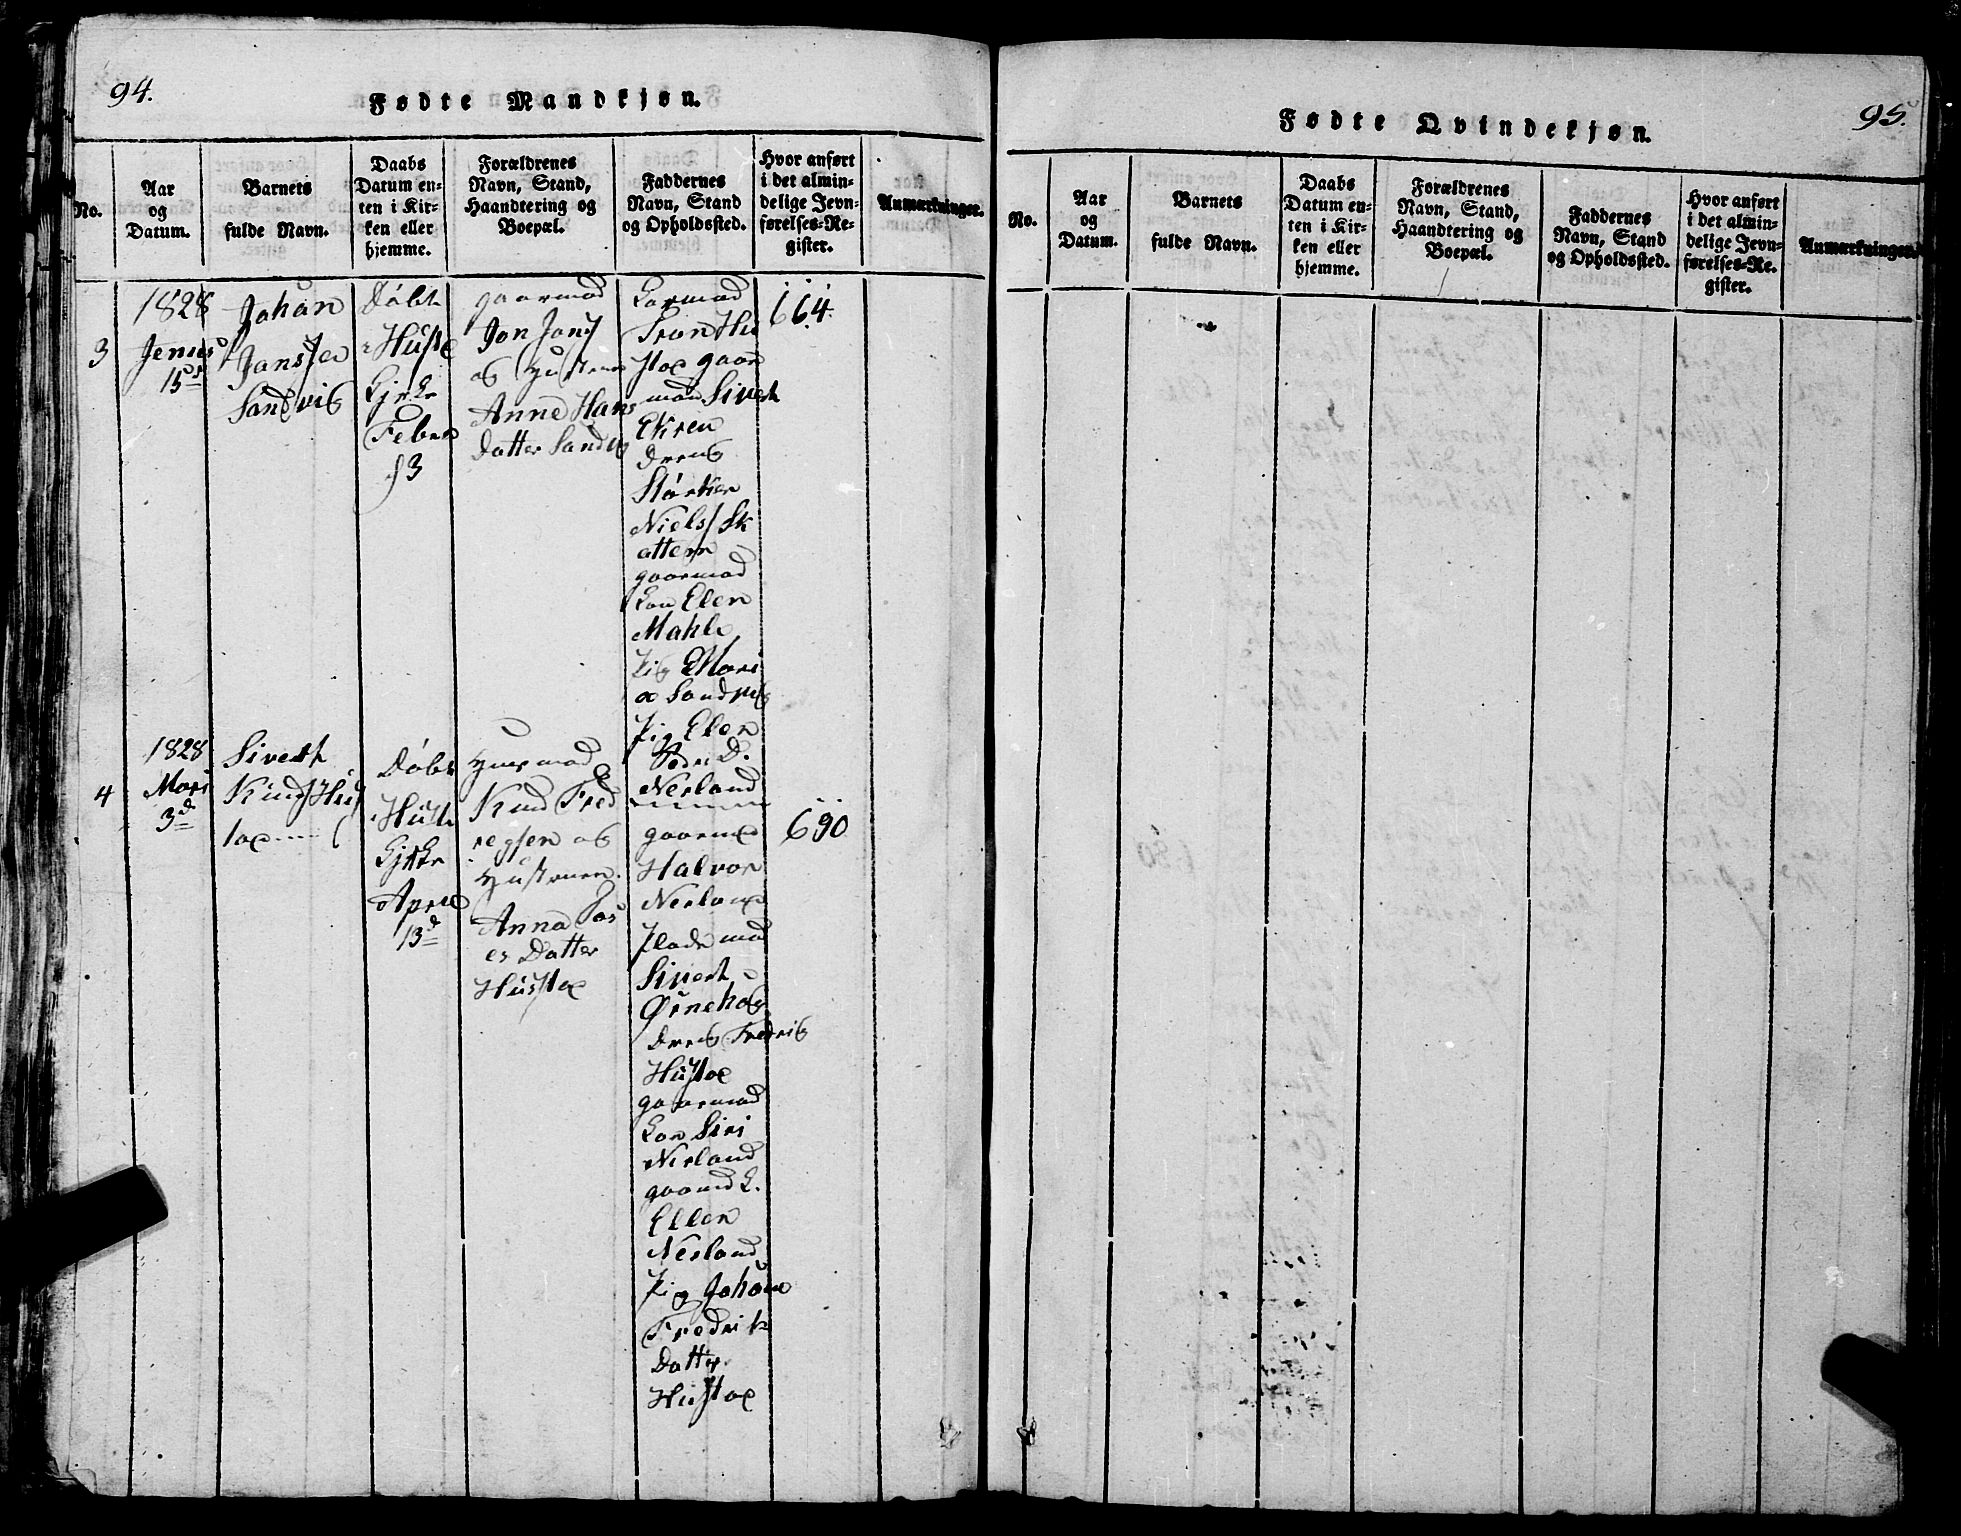 94.
Fødte Mandkjøn.
No.
Aar
og
Datum.
Barnets
fulde Navn.
Daabs
Datum en-
ten i Kir-
ken eller
hjemme.
Forældrenes
Navn, Stand,
Haandtering og
Boepæl.
Faddernes
Navn, Stand
og Opholdssted.
Hvor anført
i det almin-
delige Jevn-
førelses-Re-
gister.
Anmærkninger.
3
1828
15
Johan
Jansen
Sandvig
Døbt
i Huste
Febru
3
gaarmad
Jon Jons
og Hustru
Anne Hans
Datter Sandvg
gaar
mad Sivert
Dreng
Niels Sk
attem
gaarmad
Kon Elen
Mahle
Pig Mari
a Sandvig
Pig Elen
Peder D.
Nerland
664
4
1828
Mars
3d
Sivert
Knuds Hus
tad
Døbt
i Huste
Kirke
Apriel
13d
Husmad
Knud Fred
regsen og
Hustruen
Anna
es Datter
Hustad
gaarmd
Halvor
Nerland
mad
Sivert
Ørnehog
Dreng Fredrig
Hustad
gaarmad
Kon Siri
Nerland
gaamd K.
Ellen
Nerland
Pig Johane
Fredrik
Datter
Hustad
690
95.
Fødte Qvindekjøn.
No.
Aar
og
Datum.
Barnets
fulde Navn.
Daabs
Datum en-
ten i Kir-
ken eller
hjemme.
Forældrenes
Navn, Stand,
Haandtering og
Boepæl.
Faddernes
Navn, Stand
og Opholdssted.
Hvor anført
i det almin-
delige Jevn-
førelses-Re-
gister.
Anmærkninger.